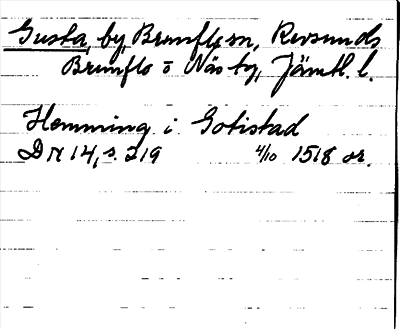 Gusta, by, Brunflo sn, Revsunds
Brunflo o Näs tg, Jämtl. l.
Hemming i Gotistad
DN 14, s. 219 4/10 1518 or.